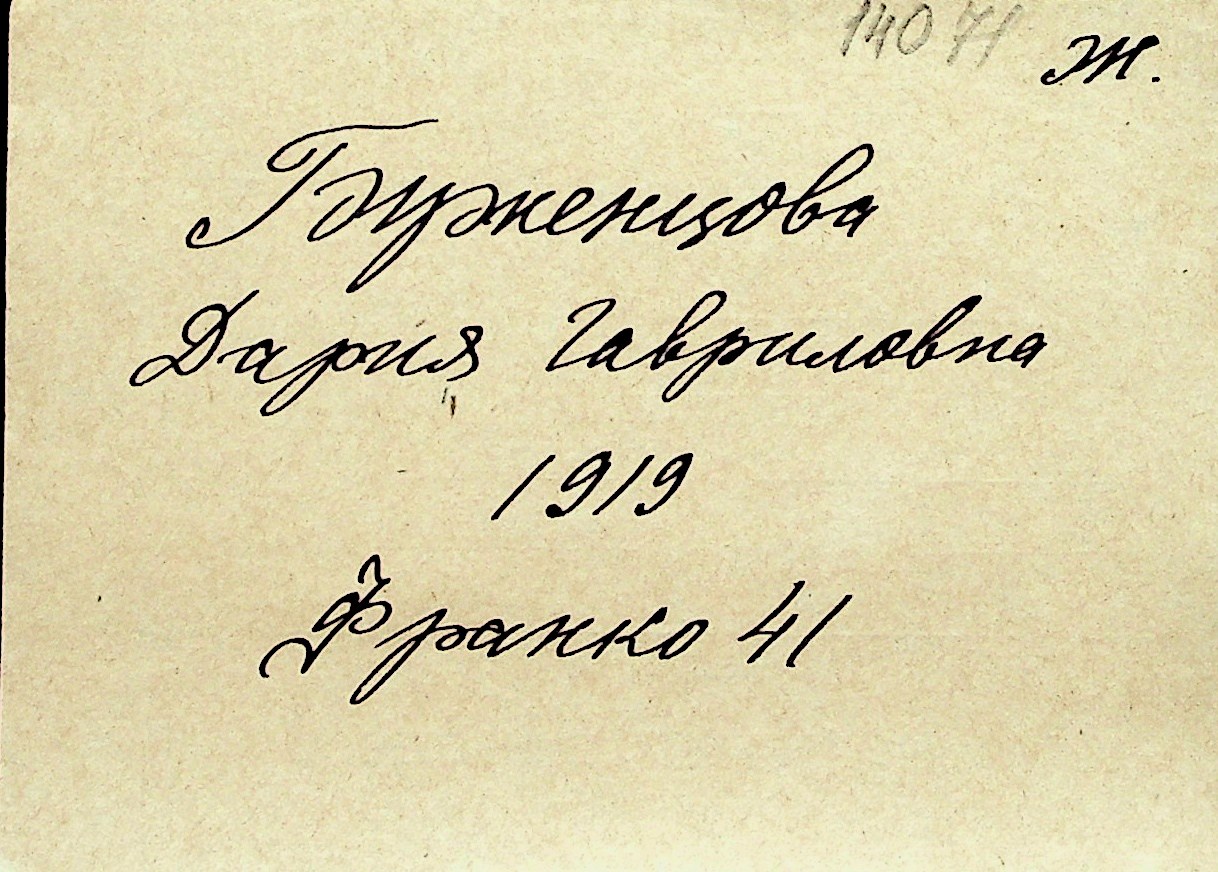 14071 ж.
Буженцова
Дария Гавриловна
1919
Франко 41